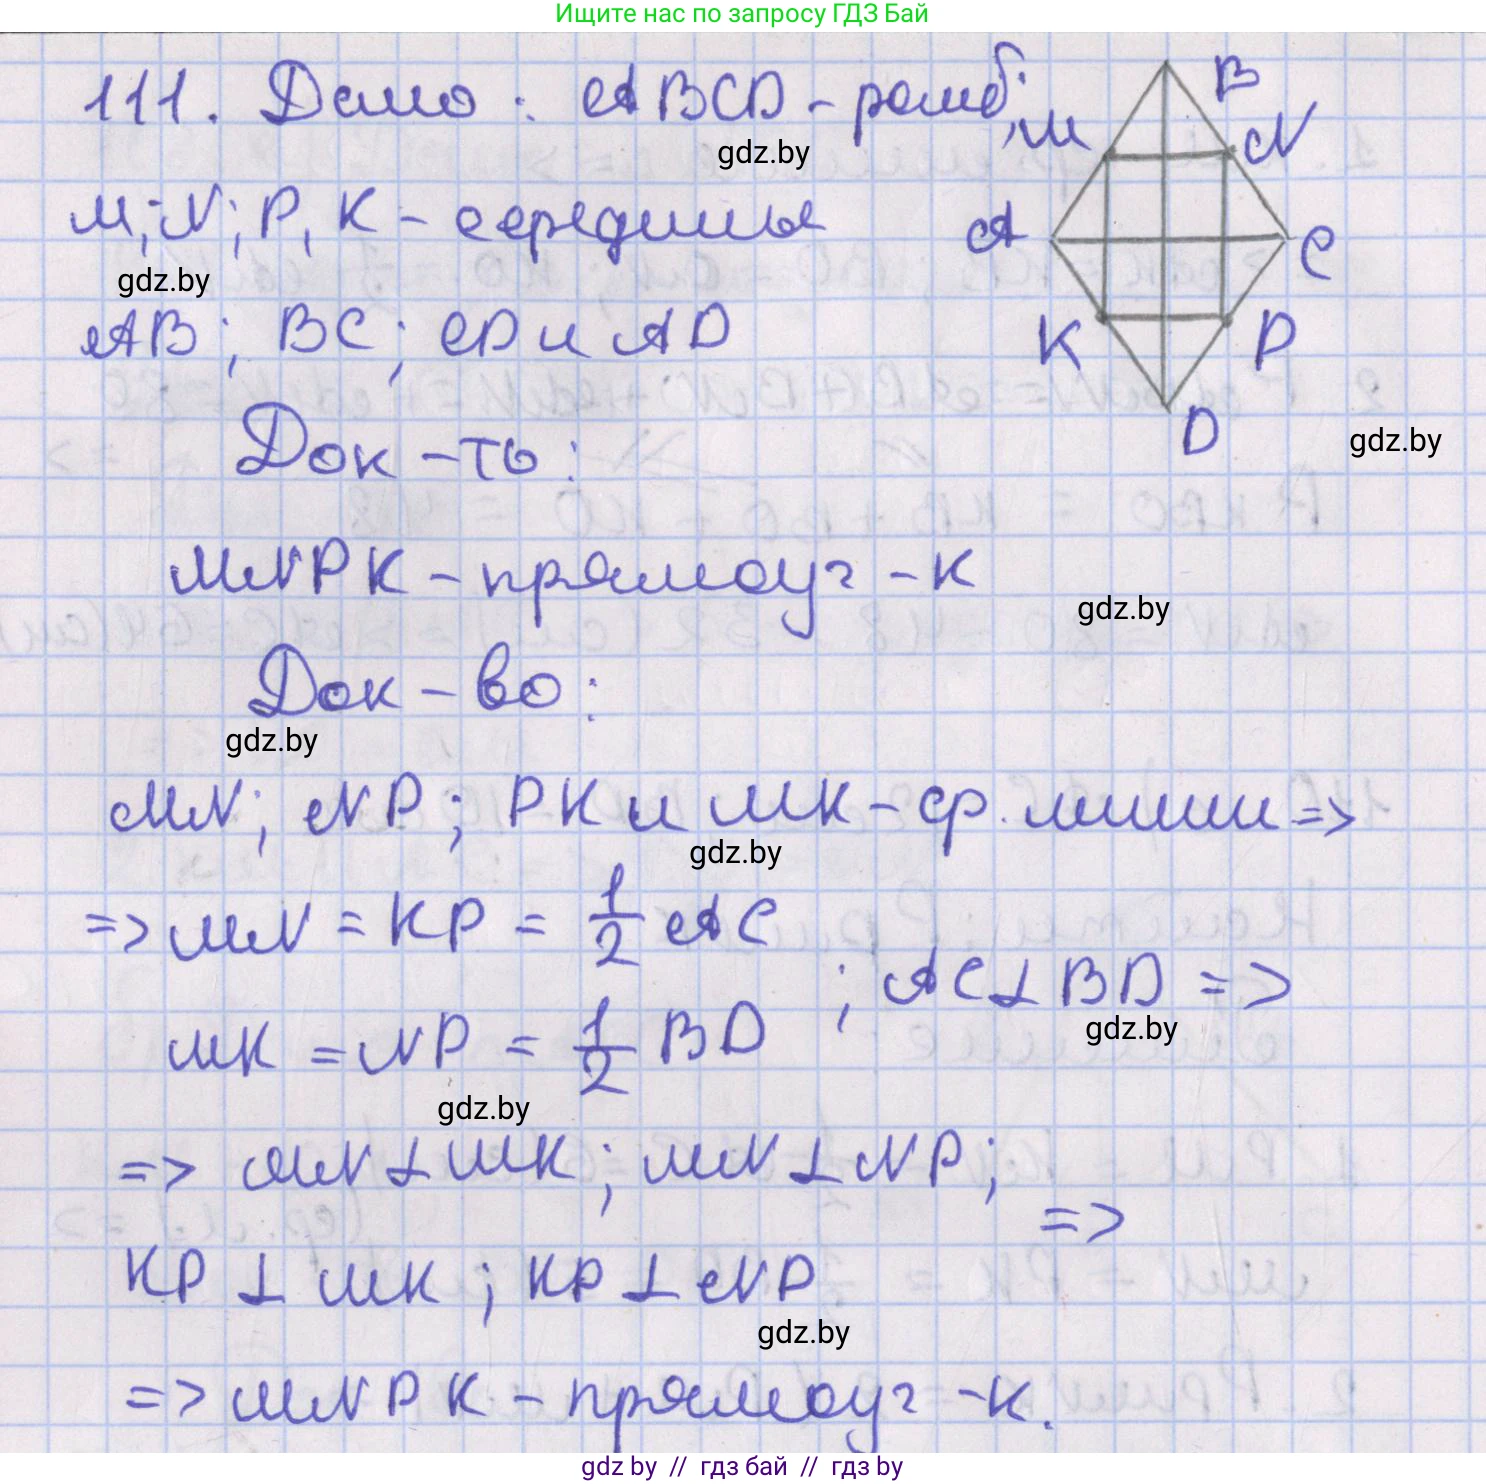 Ищите нас по запросу ГДЗ Бай
111. Дано: ABCD - ромб;
M; N; P, K - середины
AB; BC; CD и AD
Док-ть:
MNPK - прямоуг-к
Док-во:
MN; NP; PK и MK - ср. линии =>
=> MN = KP = 1/2 AC
MK = NP = 1/2 BD ; AC⊥BD =>
=> MN ⊥ MK; MN ⊥ NP;
KP ⊥ MK; KP ⊥ NP =>
=> MNPK - прямоуг-к.
B
M
N
A
C
K
P
D
gdz.by
gdz.by
gdz.by
gdz.by
gdz.by
gdz.by
gdz.by
gdz.by
gdz.by
gdz.by // гдз бай // гдз by